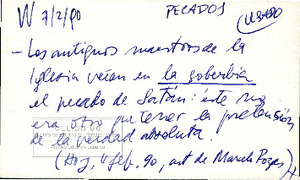 W 7/2/90 PECADOS (USADO)
- Los antiguos maestros de la
Iglesia veían en la soberbia
el pecado de Satán: éste no
era otro que tener la pretensión
de la verdad absoluta.
(Hoy, 4 feb. 90, art de